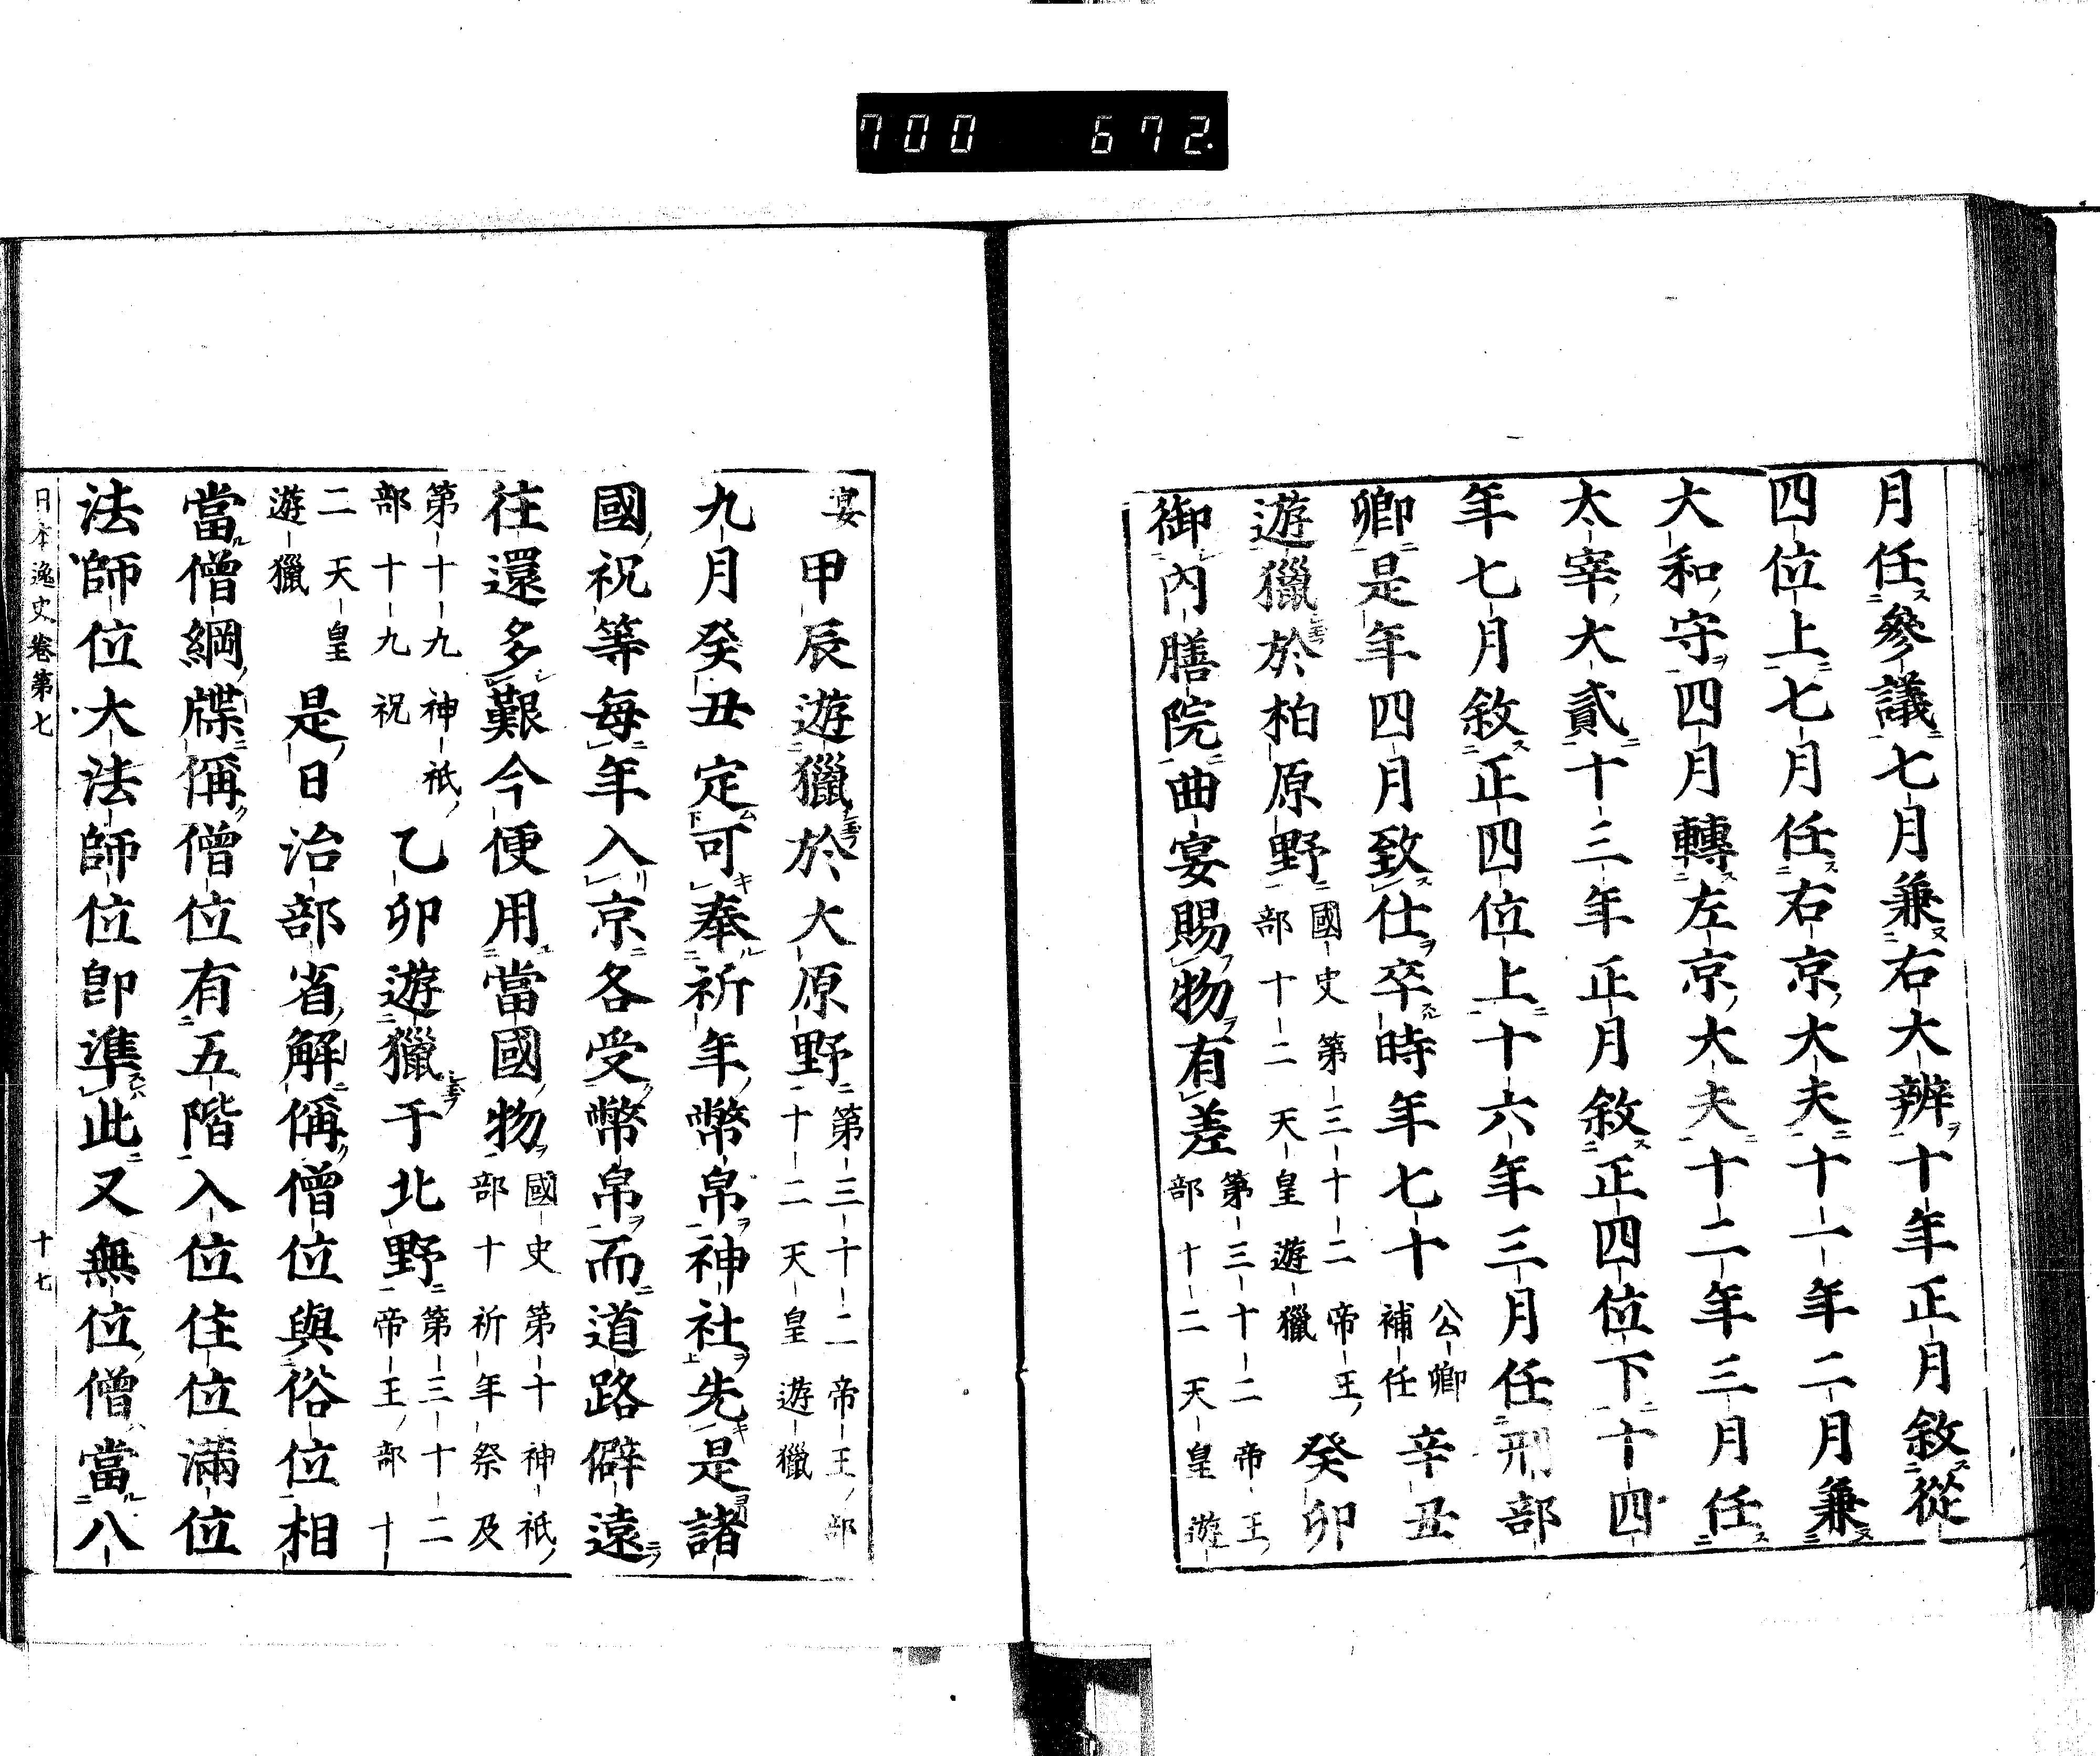 700 672.
月任參議七月兼右大辨十年正月敘從
四位上七月任右京大夫十一年二月兼
大和守四月轉左京大夫十二年三月任
太宰大貳十三年正月敘正四位下十四
年七月敘正四位上十六年三月任刑部
卿是年四月致仕卒時年七十公卿補任辛丑
遊獵於柏原野國史第三十二帝王部十二天皇遊獵癸卯
御內膳院曲宴賜物有差第三十二帝王部十二天皇遊
宴甲辰遊獵於大原野第三十二帝王部十二天皇遊獵
九月癸丑定可奉祈年幣帛神社先是諸
國祝等每年入京各受幣帛而道路僻遠
往還多艱今便用當國物國史第十神祇部十祈年祭及
第十九神祇部十九祝乙卯遊獵于北野第三十二帝王部十
二天皇遊獵是日治部省解偁僧位與俗位相
當僧綱牒偁僧位有五階入位住位滿位
法師位大法師位卽準此又無位僧當八
日本逸史卷第七 十七